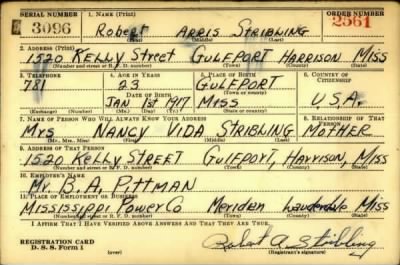 SERIAL NUMBER 1. NAME (Print) ORDER NUMBER
3096 Robert Arris Stribling 2561
(First) (Middle) (Last)
2. ADDRESS (Print)
1520 Kelly Street Gulfport Harrison Miss
(Number and street or R. F. D. number) (Town) (County) (State)
3. TELEPHONE 4. AGE IN YEARS 5. PLACE OF BIRTH 6. COUNTRY OF CITIZENSHIP
781 23 Gulfport
DATE OF BIRTH (Town or county)
Jan 1st 1917 Miss U.S.A.
(Exchange) (Number) (Mo.) (Day) (Yr.) (State or country)
7. NAME OF PERSON WHO WILL ALWAYS KNOW YOUR ADDRESS 8. RELATIONSHIP OF THAT PERSON
Mrs Nancy Vida Stribling Mother
(Mr., Mrs., Miss) (First) (Middle) (Last)
9. ADDRESS OF THAT PERSON
1520 Kelly Street Gulfport, Harrison, Miss
(Number and street or R. F. D. number) (Town) (County) (State)
10. EMPLOYER'S NAME
Mr. B. A. Pittman
11. PLACE OF EMPLOYMENT OR BUSINESS
Mississippi Power Co Meridian Lauderdale Miss
(Number and street or R. F. D. number) (Town) (County) (State)
I AFFIRM THAT I HAVE VERIFIED ABOVE ANSWERS AND THAT THEY ARE TRUE.
REGISTRATION CARD
D. S. S. Form 1 (over) Robert A Stribling
(Registrant's signature)